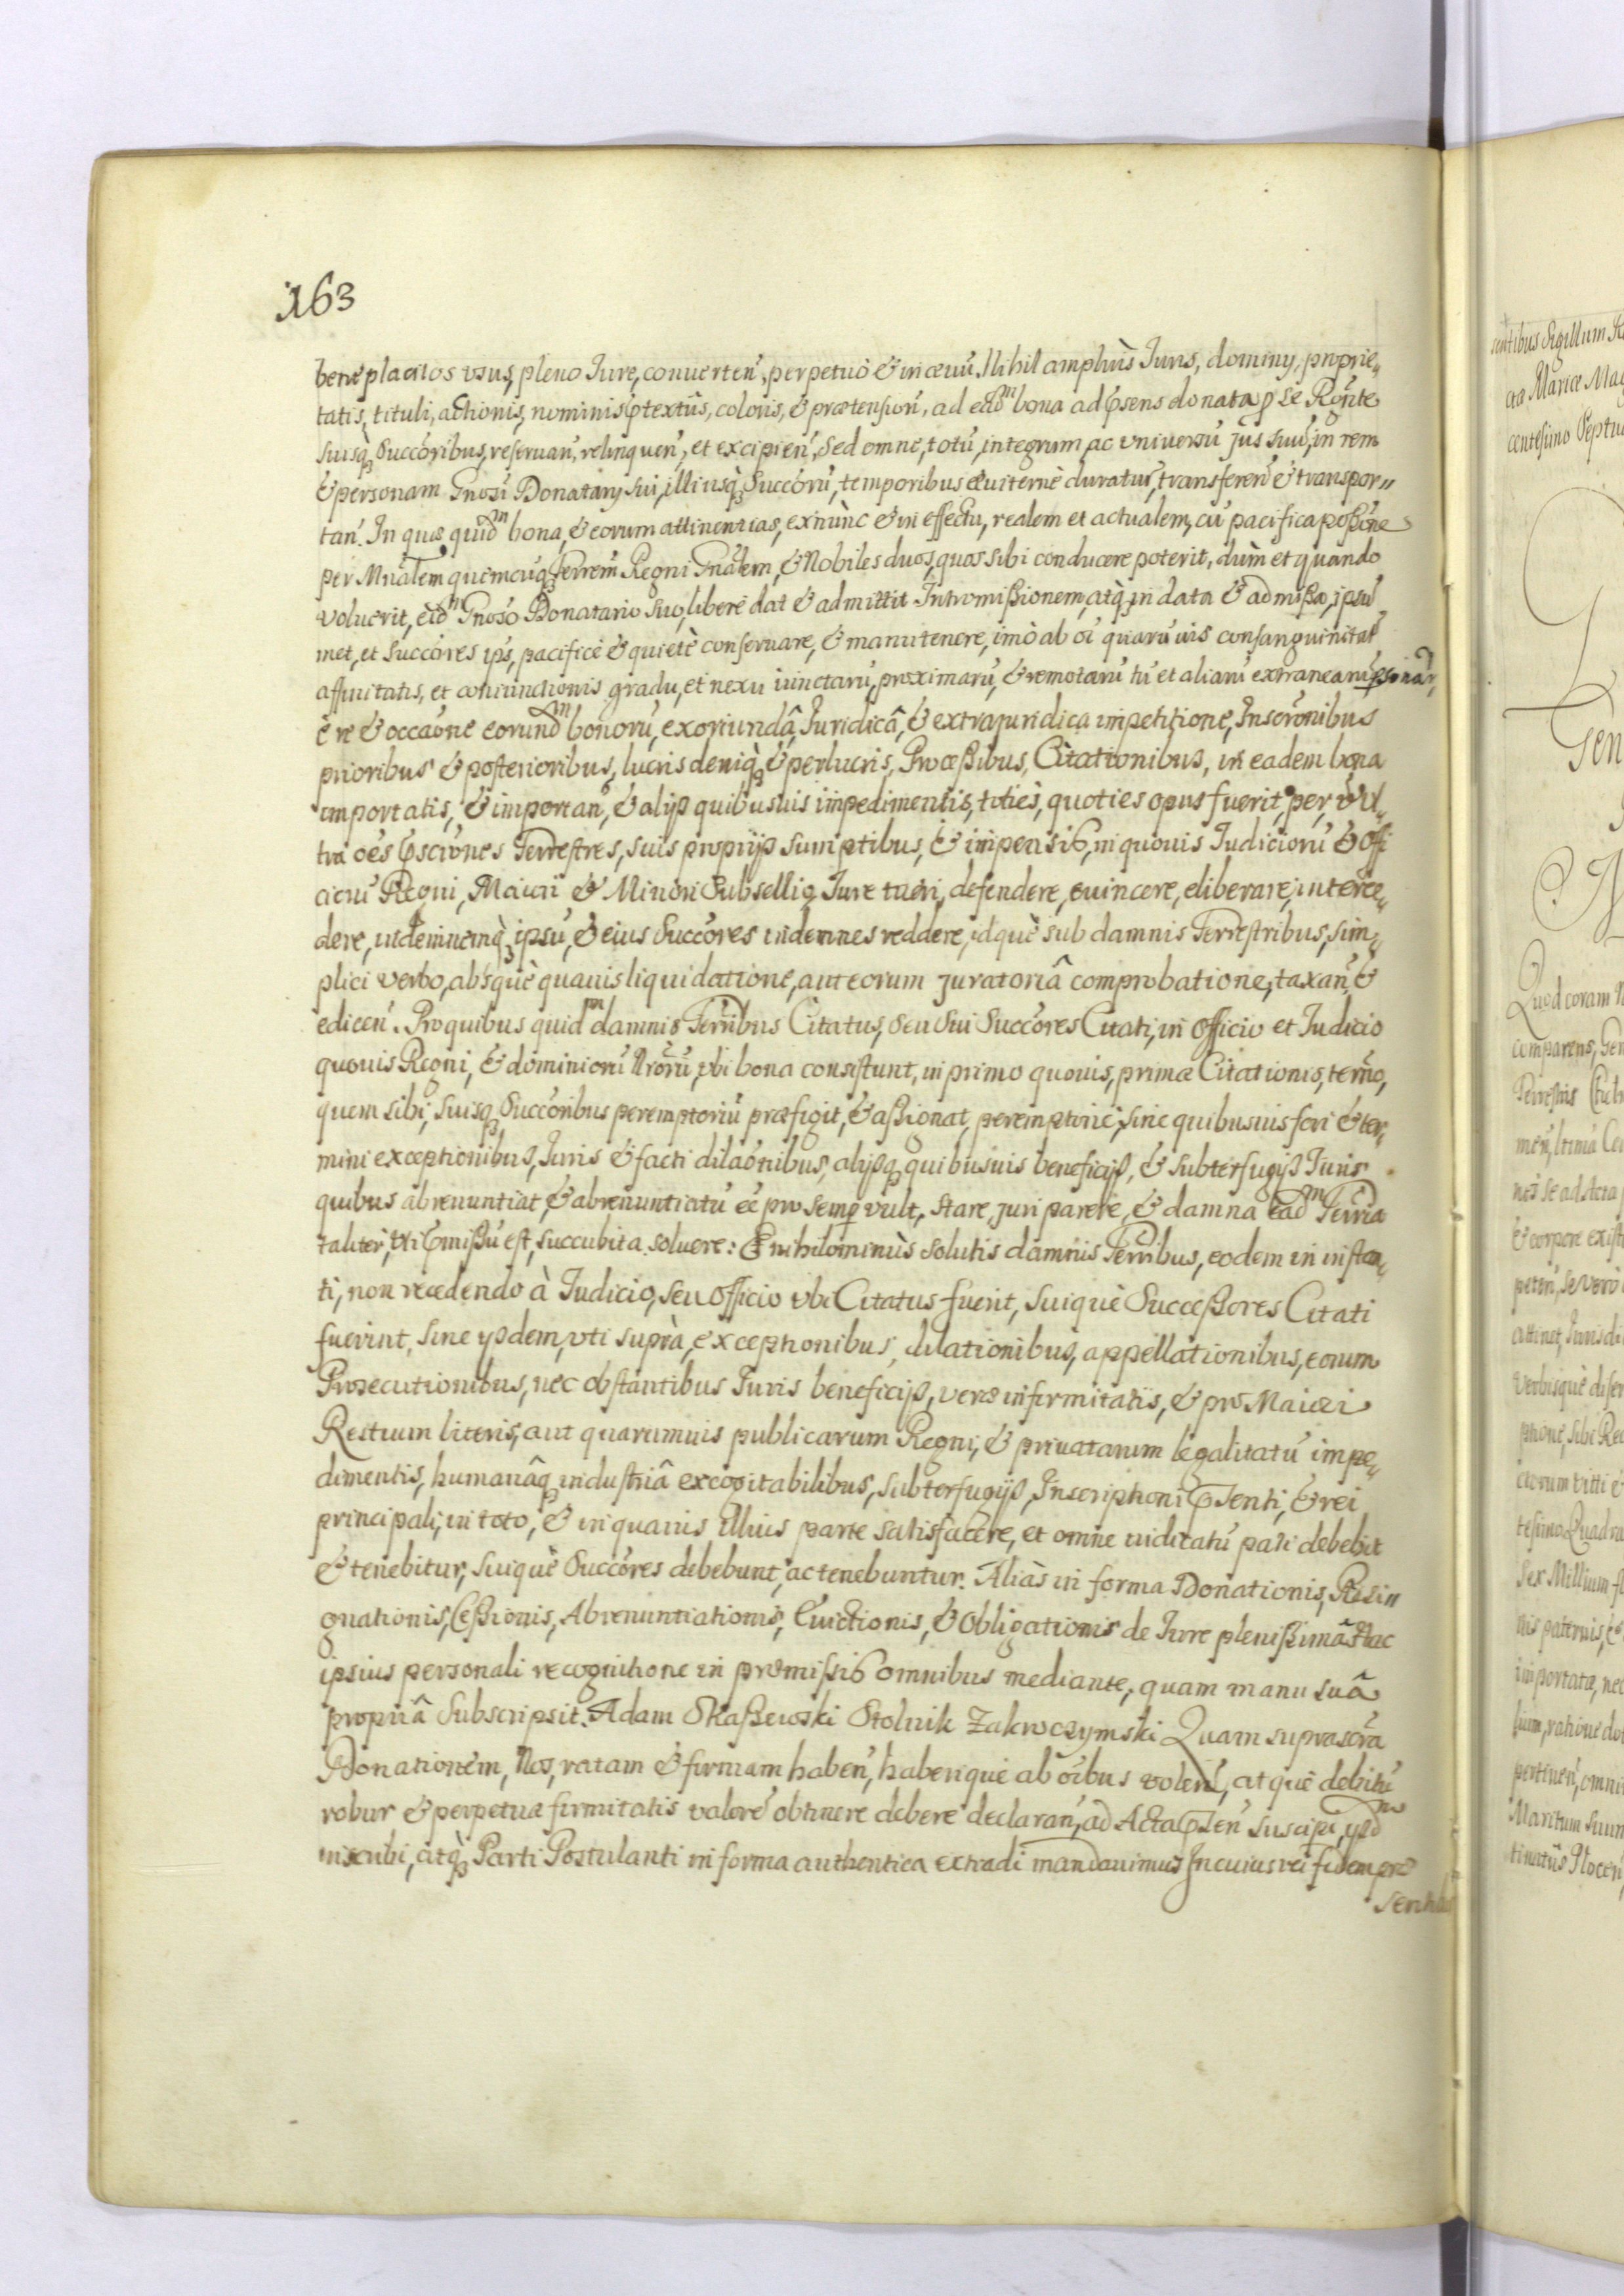 163
beneplacitos usus, pleno Jure, conuerten̄, perpetuò & in œuū. Nihil ampliùs Juris, dominy, proprie„
tatis, tituli, actionis, nominis, ꝓtextûs, coloris, & prætension̄, ad eādm bona ad ꝓsens donata ꝑ se Rōnte
suisq̀ Succōribus, reseruan̄, relinquen̄, et excipien̄, Sed omne, totū, integrum, ac vniversū jus suū, in rem
& personam Gnōsi Donatarÿ sui, illiusq̀ Succōrū, temporibus æuiternè duratur̄, transferen̄ & transpor„
tan̄. In quæ quidm bona, & eorum attinentias, exnùnc & in effectu, realem et actualem, cū pacifica poßōne
per Mnālem quemcuq̀ Terrēm Regni Gnālem, & Nobiles duos, quos sibi conducere poterit, dum et quando
voluerit, eidm Gnōso Donatario suo, liberè dat & admittit Intromißionem, atq̀ in data & admißa, ipsū
met, et Succōres ip̄s, pacificè & quietè conseruare, & manutenere, imò ab oī quarūuis consanguinitat̄
affinitatis, et coniunctionis gradu, et nexu iunctarū, proximarū, & remotarū tū et aliarū extranearū ꝑsonar̄,
è re & occaōne eorundm bonorū, exoriundâ, Juridicâ, & extrajuridica impetitione, Inscrōnibus
prioribus & posterioribus, lucris deniq̀ & perlucris, Proceßibus, Citationibus, in eadem bona
importatis, & importan̄, & alÿs quibusuis impedimentis, totiès, quoties opus fuerit, per, & vl„
tra oēs ꝓscrōnes Terrestres, suis proprÿs sumptibus, & impensis, in quouis Judiciorū & Offi
ciorū Regni, Maiori & Minori Subsellio Jure tueri, defendere, euincere, eliberare, interce„
dere, indemnemq̀ ipsū, & eius Succōres indemnes reddere, idquè sub damnis Terrestribus, sim„
plici verbo, absquè quauis liquidatione, aut eorum juratoriâ comprobatione, taxan̄ &
edicen̄. Pro quibus quidm damnis Terribus Citatus, seu sui Succōres Citati, in Officio et Judicio
quouis Regni, & dominiorū Nrōrū, vbi bona consistunt, in primo quouis, primæ Citationis, termō,
quem sibi, suisq̀ Succōribus peremptoriū præfigit, & aßignat, peremptoriè, sine quibusuis fori & ter„
mini exceptionibus, Juris & facti dilaōnibus, alÿsq̀ quibusuis beneficÿs, & subterfugÿs Juris
quibus abrenuntiat, & abrenuntiatū eē pro semꝑ vult, stare, juri parere, & damna eādm Terria
taliter, vti ꝓmißū est, succubita soluere: Et nihilominùs solutis damnis Terribus, eodem in instan„
ti, non recedendo à Judicio, seu Officio vbi Citatus fuerit, suiquè Succeßores Citati
fuerint, sine ÿsdem, vti suprà, exceptionibus, dilationibus, appellationibus, eorum
Prosecutionibus, nec obstantibus Juris beneficÿs, veræ infirmitatis, & pro Maiori
Restium literis, aut quarumuis publicarum Regni, & priuatarum legalitatū impe„
dimentis, humanâq̀ industriâ excogitabilibus, subterfugÿs, Inscriptioni ꝓsenti, & rei
principali, in toto, & in quauis illius parte satisfacere, et omne iudicatū pati debebit
& tenebitur, suiquè Succōres debebunt, ac tenebuntur. Aliàs in forma Donationis, Resi„
gnationis, Ceßionis, Abrenuntiationis, Euictionis, & Obligationis de Jure plenißimâ. Hac
ipsius personali recognitione in præmißis omnibus mediante, quam manu suâ
propriâ subscripsit. Adam Skaßewski Stolnik Zakroczymski Quam suprascrām
Donationem, Nos, ratam & firmam haben̄, haberiquè ab oībus volen̄, atquè debitū
robur & perpetuæ firmitatis valorē obtinere debere declaran̄, ad Acta ꝓsen̄ suscipi, ÿsdm
inscribi, atq̀ Parti Postulanti in forma authentica extradi mandauimus. In cuius rei fidem præ
sentibus
sentibus Sigillum
cta Mariæ Mag
centesimo Septu
Gen
Quod coram
comparens, Gen
Terrestris
& corpore exist
attinet, Jurisdi
verbisquè diser
ptione, sibi Re
tesimo Quadra
Sex Millium fl
nis paternis, &
importatæ, nec
pertinen̄, omni
Maritum suum